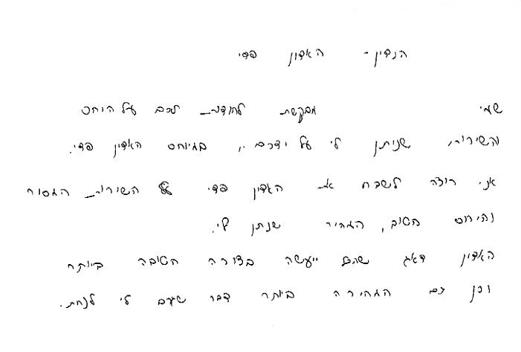 הנדין - האדון פדי
שמי מבקשת להודות לכם על היחס
והשירות, שניתן לי על ידכם, במיוחד האדון פדי.
אני רוצה לשבח את האדון פדי על השירות המסור
והיחס הטוב, המהיר שנתן לי.
האדון דאג שהכל ייעשה בצורה הטובה ביותר
וכן גם המהירה ביותר דבר שגרם לי לנחת.